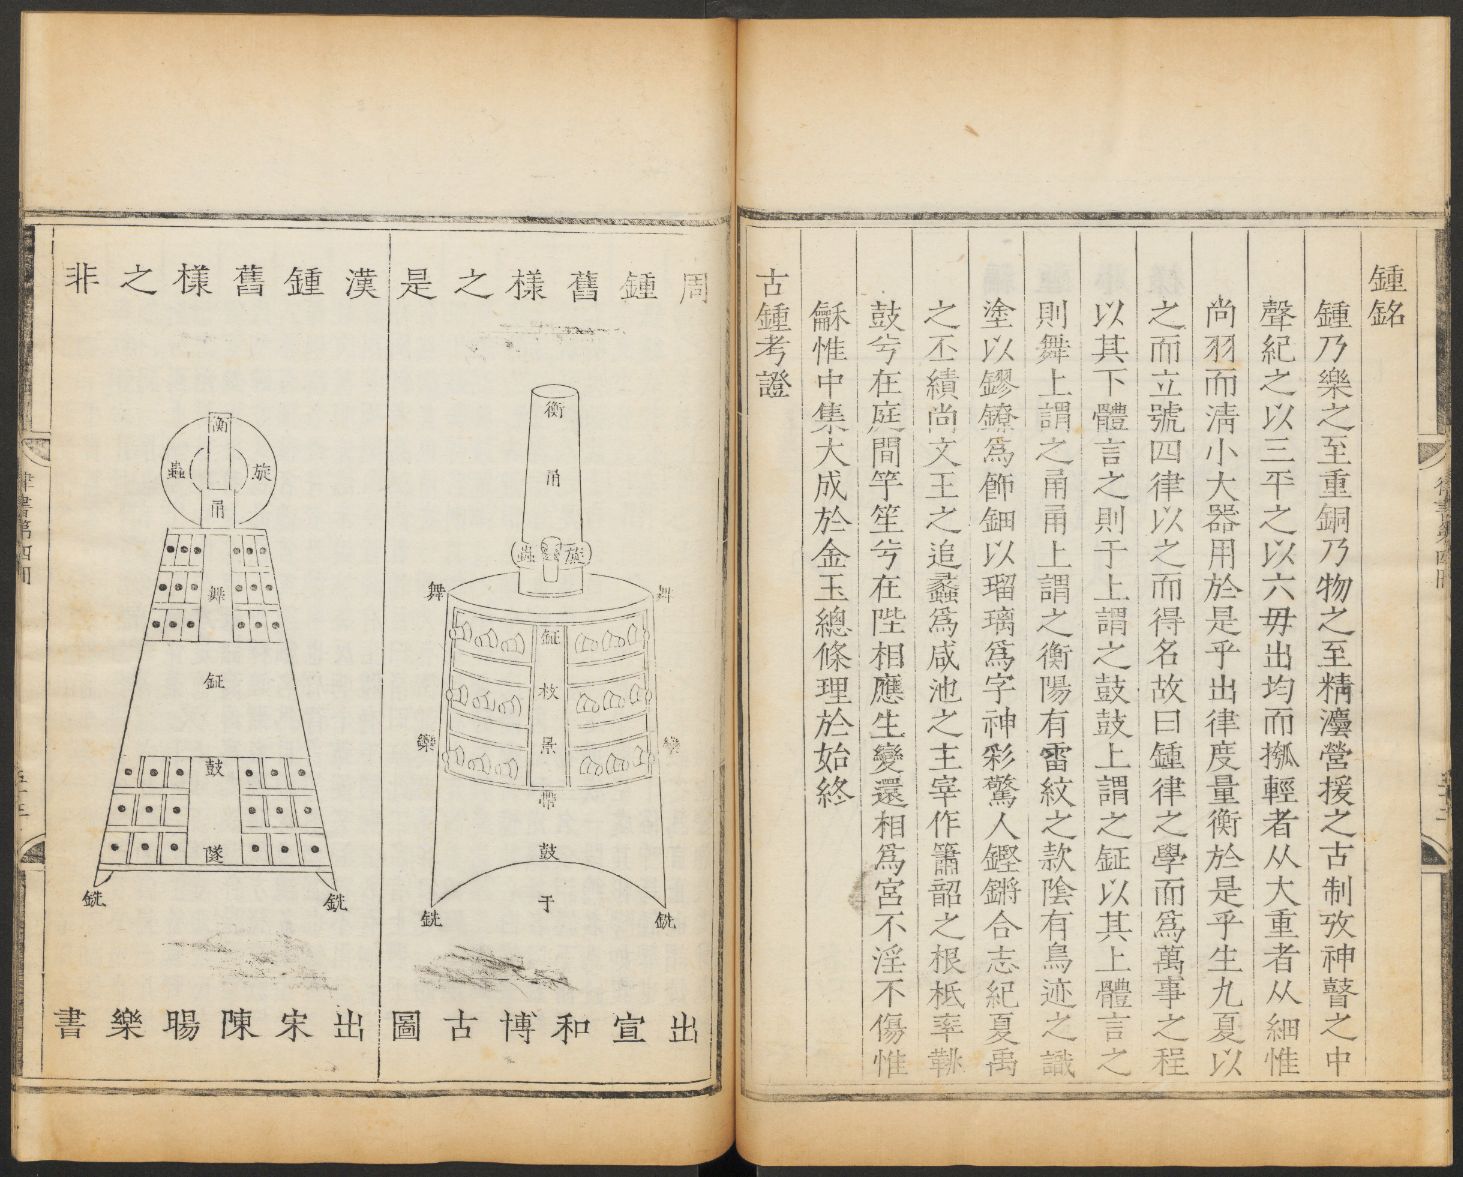 鍾銘
鍾乃樂之至重銅乃物之至精灋營援之古制攷神瞽之中
聲紀之以三平之以六毋出均而摦輕者从大重者从細惟
尚羽而淸小大器用於是乎出律度量衡於是乎生九夏以
之而立號四律以之而得名故曰鍾律之學而爲萬事之程
以其下體言之則于上謂之鼓鼓上謂之鉦以其上體言之
則舞上謂之甬甬上謂之衡陽有雷紋之款陰有鳥迹之識
塗以鏐鐐爲飾鈿以瑠璃爲字神彩驚人鏗鏘合志紀夏禹
之丕績尚文王之追蠡爲咸池之主宰作簫韶之根柢率鞉
鼓兮在庭間竽笙兮在陛相應生變還相爲宮不淫不傷惟
龢惟中集大成於金玉總條理於始終
古鍾考證
周鍾舊樣之是
衡
甬
旋
蟲
舞
舞
鉦
枚
景
欒
欒
帶
鼓
于
銑
銑
出宣和博古圖
漢鍾舊樣之非
衡
旋
蟲
甬
舞
鉦
鼓
隧
銑
銑
出宋陳暘樂書
律書第四冊